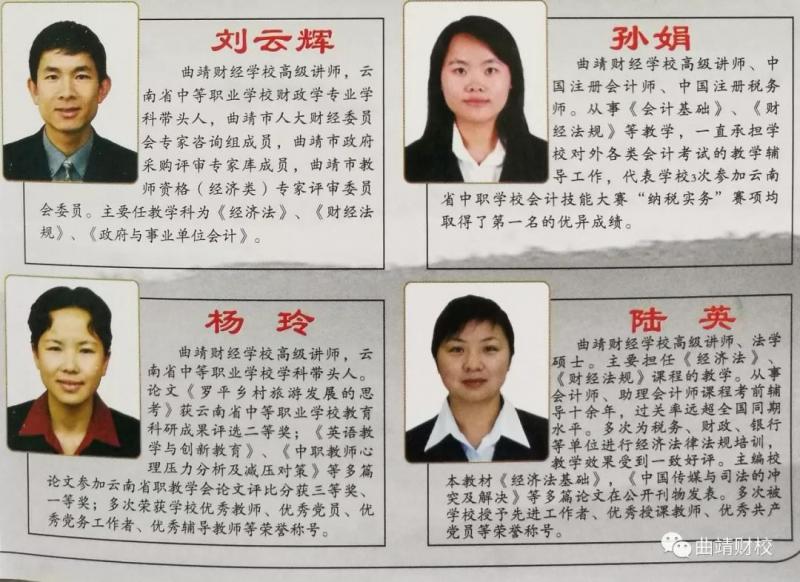 刘云辉
曲靖财经学校高级讲师，云
南省中等职业学校财政学专业学
科带头人，曲靖市人大财经委员
会专家咨询组成员，曲靖市政府
采购评审专家库成员，曲靖市教
师资格（经济类）专家评审委员
会委员。主要任教学科为《经济法》、《财经法
规》、《政府与事业单位会计》。
孙娟
曲靖财经学校高级讲师、中
国注册会计师、中国注册税务
师。从事《会计基础》、《财
经法规》等教学，一直承担学
校对外各类会计考试的教学辅
导工作，代表学校3次参加云南
省中职学校会计技能大赛“纳税实务”赛项均
取得了第一名的优异成绩。
杨玲
曲靖财经学校高级讲师，云
南省中等职业学校学科带头人。
论文《罗平乡村旅游发展的思
考》获云南省中等职业学校教育
科研成果评选二等奖；《英语教
学与创新教育》、《中职教师心
理压力分析及减压对策》等多篇
论文参加云南省职教学会论文评比分获三等奖、
一等奖；多次荣获学校优秀教师、优秀党员、优
秀党务工作者、优秀辅导教师等荣誉称号。
陆英
曲靖财经学校高级讲师、法学
硕士。主要担任《经济法》、
《财经法规》课程的教学。从事
会计师、助理会计师课程考前辅
导十余年，过关率远超全国同期
水平。多次为税务、财政、银行
等单位进行经济法律法规培训，
教学效果受到一致好评。主编校
本教材《经济法基础》，《中国传媒与司法的冲
突及解决》等多篇论文在公开刊物发表。多次被
学校授予先进工作者、优秀授课教师、优秀共产
党员等荣誉称号。
曲靖财校